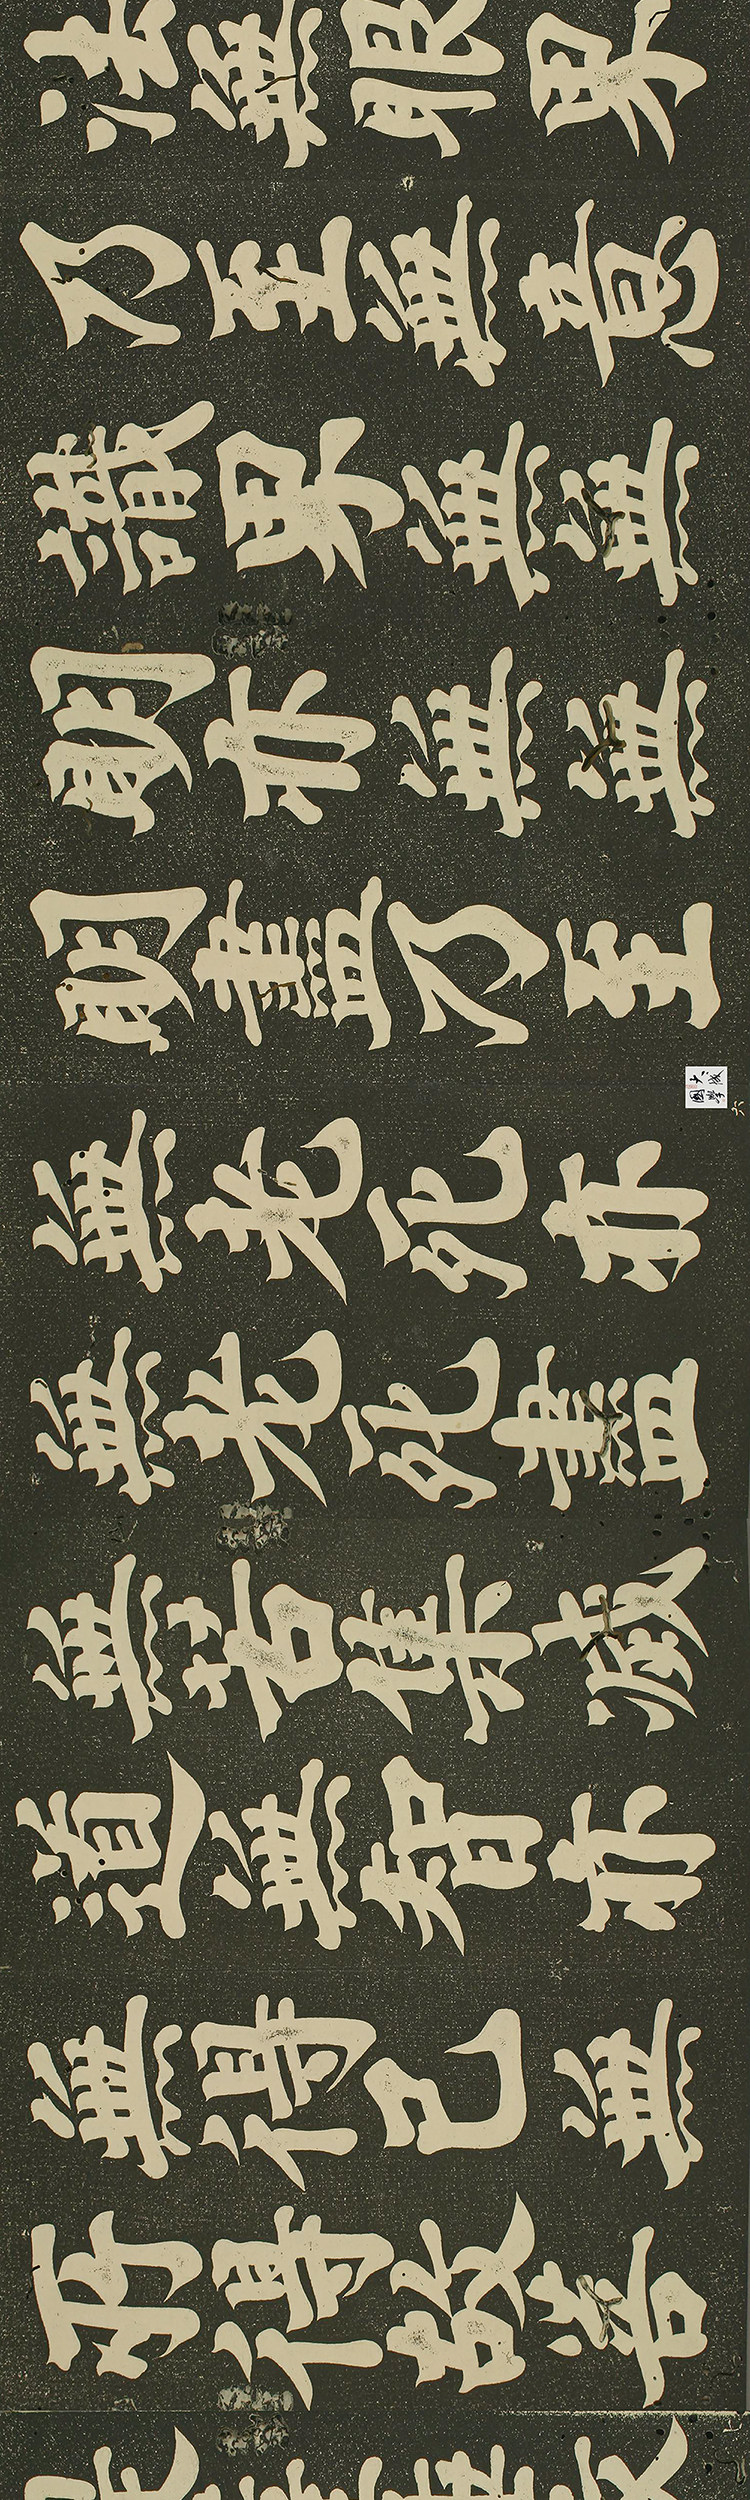 法無眼界
乃至無意
識界無無
明亦無無
明盡乃至
無老死亦
無老死盡
無苦集滅
道無智亦
無得已無
所得故菩